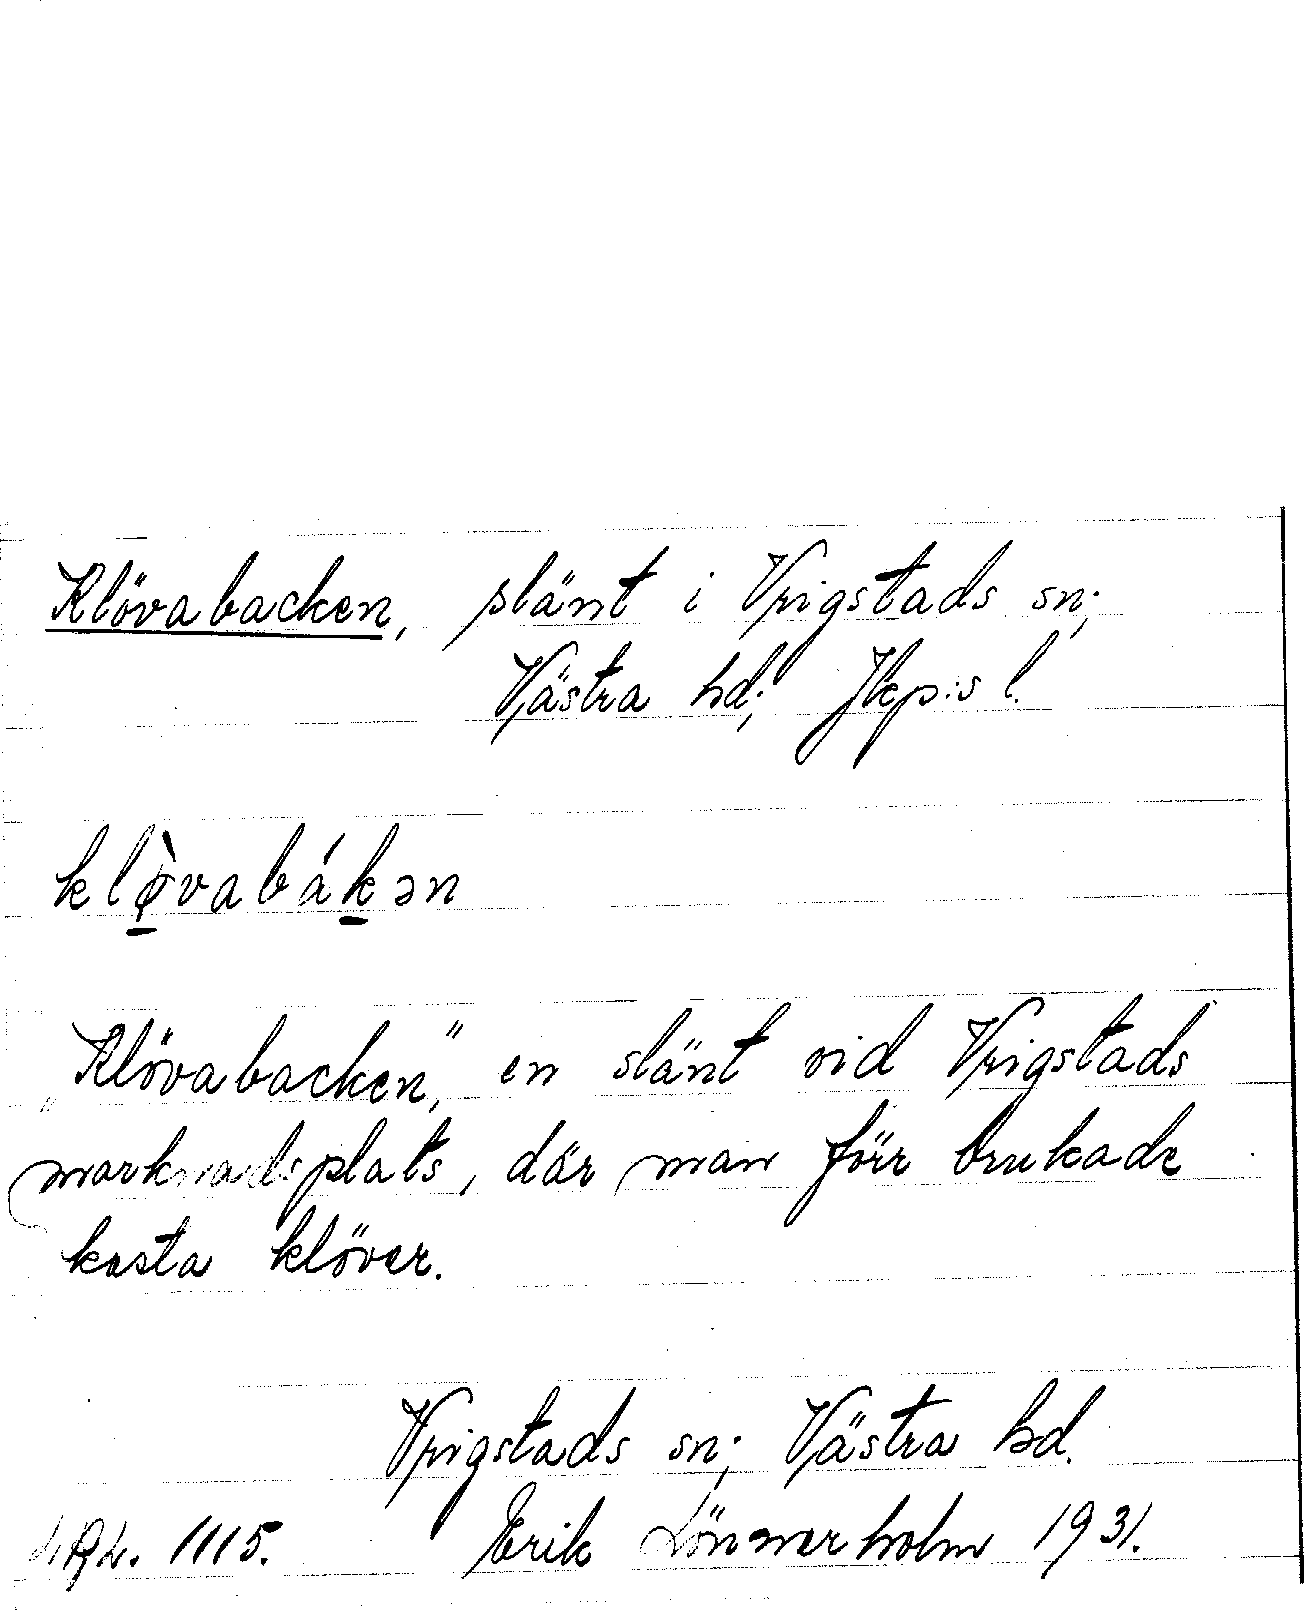 Klövabacken, slänt i Vrigstads sn;
Västra hd; Jkp:s l.
klø̠̀vabák̠ən
„Klövabacken,” en slänt vid Vrigstads
marknadsplats, där man förr brukade
kasta klöver.
Vrigstads sn; Västra hd.
1115. Erik Lönnerholm 1931.